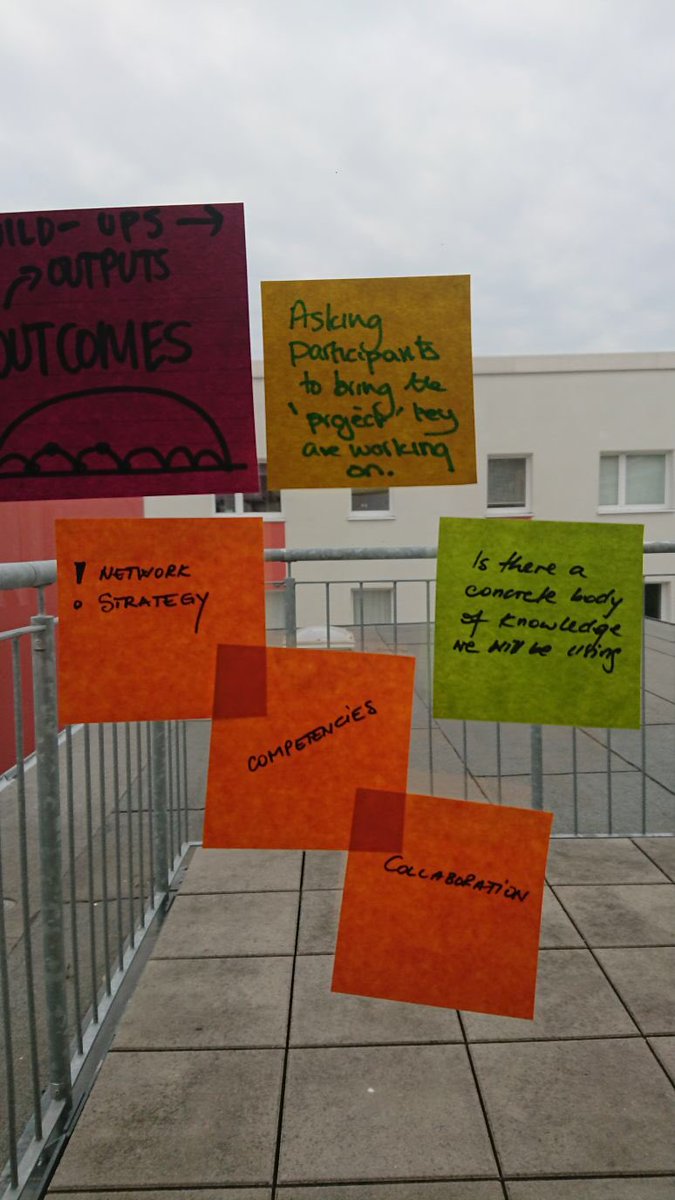 ILD-UPS →
→ OUTPUTS
OUTCOMES
Asking
participants
to bring the
'project' they
are working
on.
! NETWORK
o STRATEGY
COMPETENCIES
COLLABORATION
Is there a
concrete body
of knowledge
we will be using